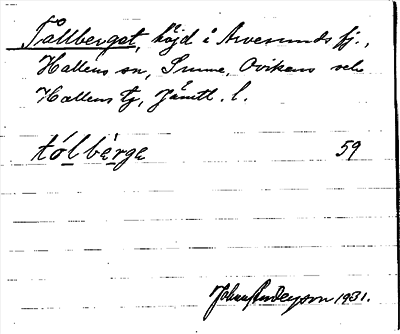 Tållberget, höjd i Arvesunds fj.,
Hallens sn, Sunne, Ovikens och
Hallens tg, Jämtl. l.
tólbèrge 59
Johan 1931.